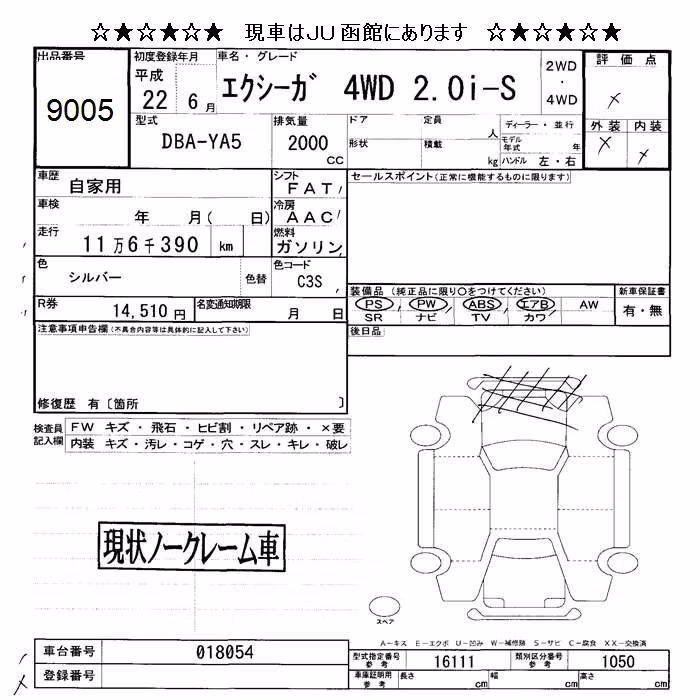 ☆★☆★☆★ 現車はJU函館にあります ☆★☆★☆★
出品番号
9005
初度登録年月
平成
22 6月
車名・グレード
エクシーガ 4WD 2.0i-S
2WD
・
4WD
評価点
×
外装 内装
× ×
型式
DBA-YA5
排気量
2000
CC
ドア
形状
定員
人
積載
kg
ディーラー・並行
モデル年式 年
ハンドル 左・右
車歴
自家用
シフト
FAT
セールスポイント(正常に機能するものに限ります)
車検
年 月( 日)
冷房
AAC
走行
11万6千390 km
燃料
ガソリン
色
シルバー
色替
色コード
C3S
装備品(純正品に限り○をつけてください)
PS PW ABS エアB AW
SR ナビ TV カワ
新車保証書
有・無
R券
14,510円
名変通知期限
月 日
後日品
注意事項申告欄(不具合内容等は具体的に記入して下さい)
修復歴 有〔箇所 〕
検査員記入欄
FW キズ・飛石・ヒビ割・リペア跡・×要
内装 キズ・汚レ・コゲ・穴・スレ・キレ・破レ
現状ノークレーム車
スペア
A-キズ E-エクボ U-凹み W-補修跡 S-サビ C-腐食 XX-交換済
車台番号
018054
登録番号
型式指定番号
参考
16111
類別区分番号
参考
1050
車庫証明用
参考
長さ cm
幅 cm
高さ cm